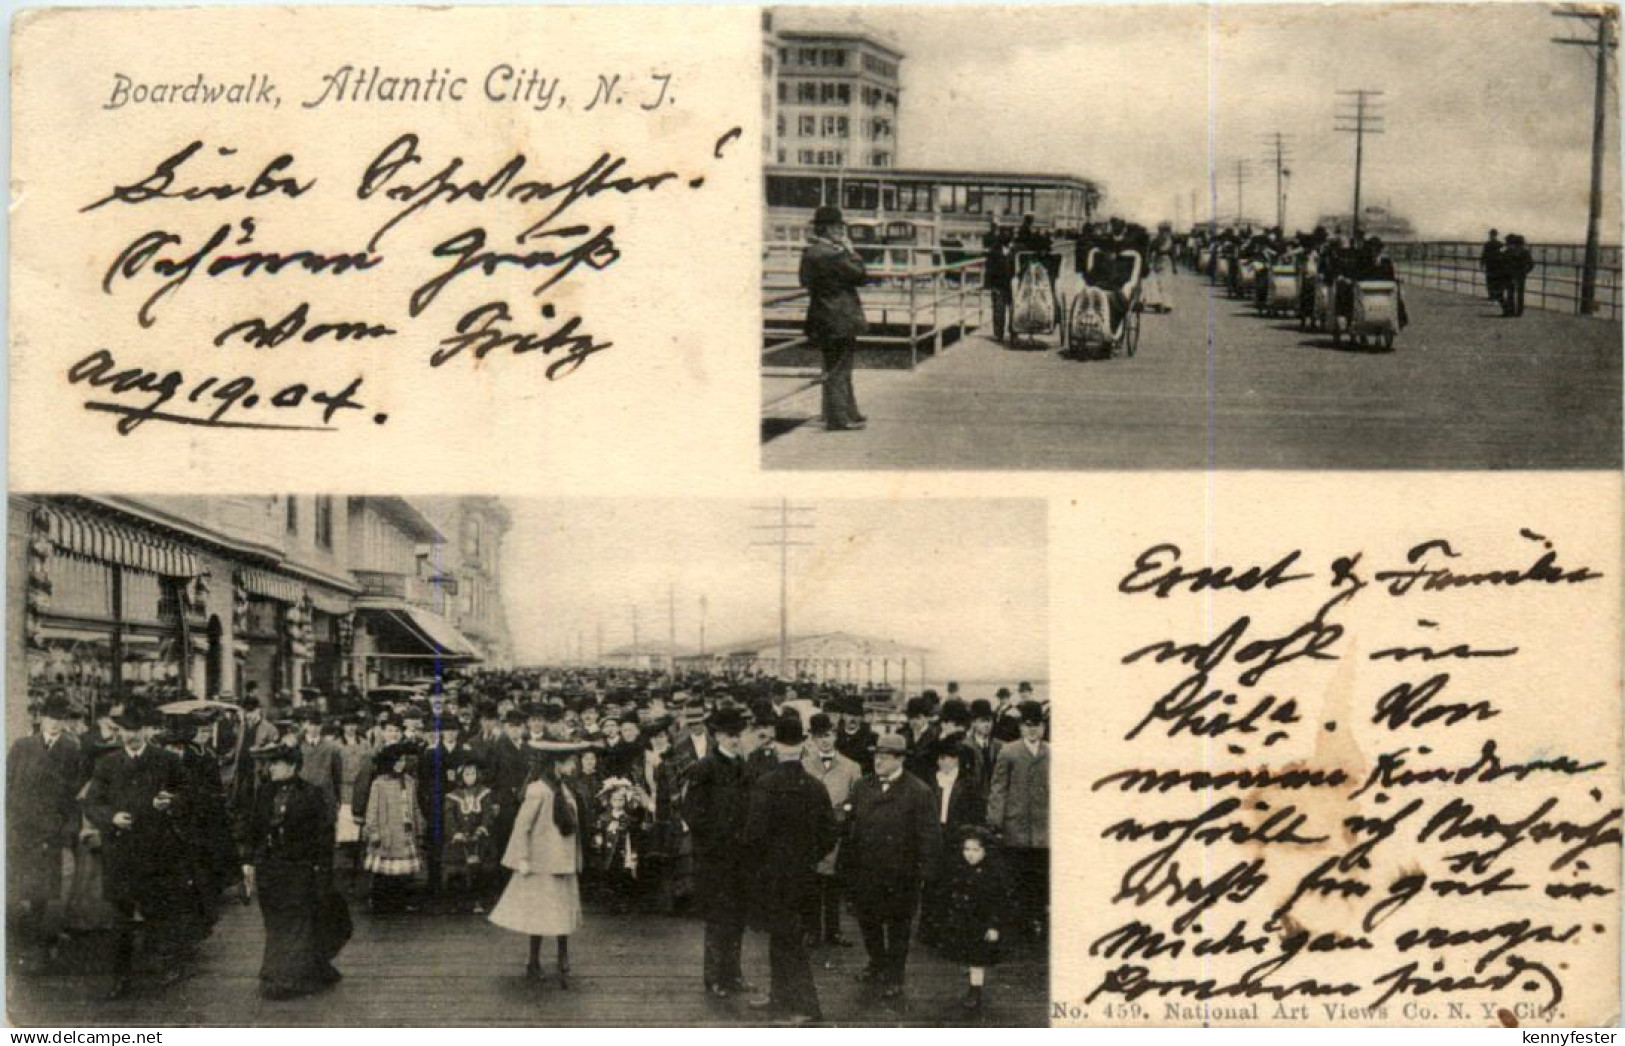 Boardwalk, Atlantic City, N. J.
Liebe Schwester!
Schönen Gruß
vom Fritz
Aug 19. 04.
Ernst & Familie
wohl in
Phila. Von
meinen Kindern
erhielt ich Nachricht
daß sie gut in
Michigan ange-
kommen sind.
No. 459. National Art Views Co. N. Y. City.
delcampe.net
kennyfester